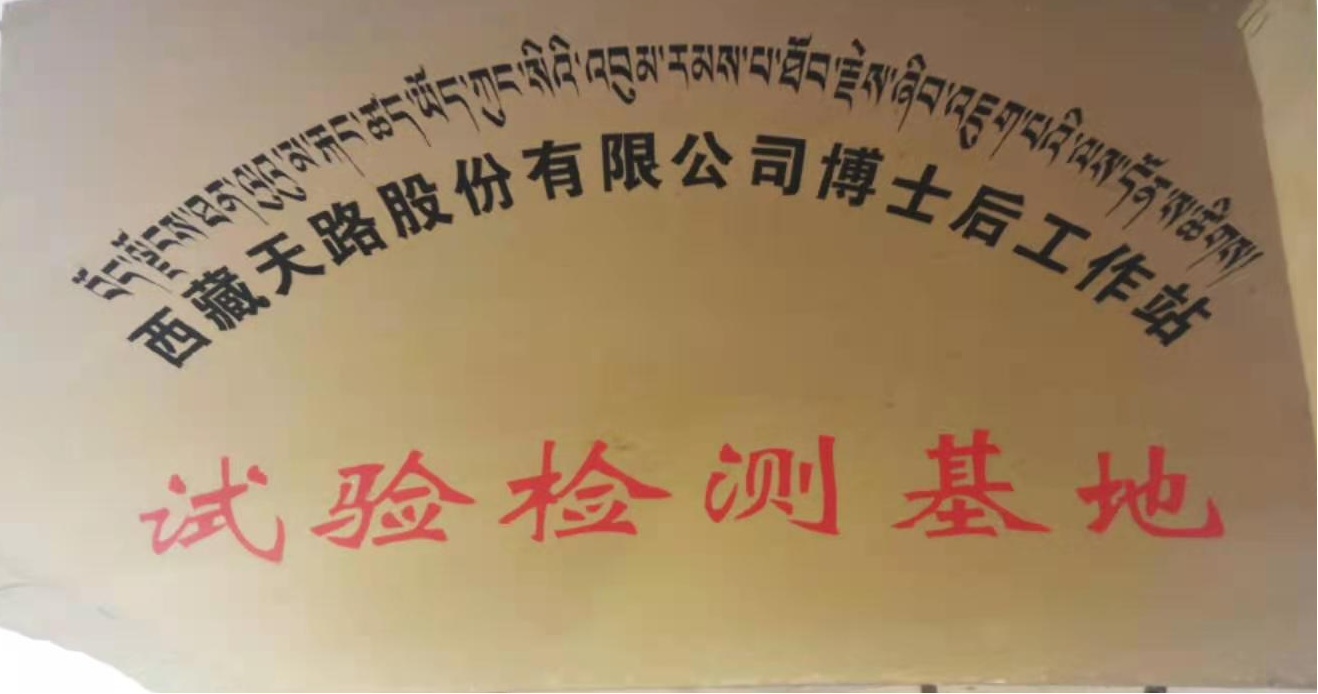 བོད་ལྗོངས་ཐག་ལྷའུ་མ་རྐང་ཚད་ཡོད་ཀུང་སིའི་འབུམ་རམས་པ་ཐོབ་རྗེས་ཞིབ་འཇུག་པའི་ལས་དོན་ས་ཚིགས།
西藏天路股份有限公司博士后工作站
试验检测基地